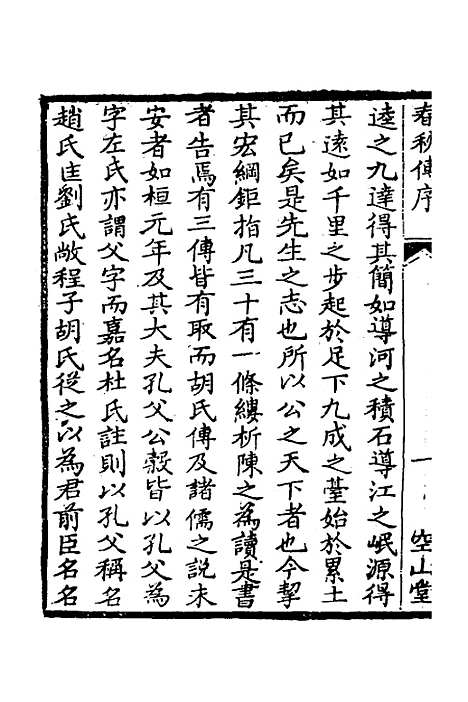 春秋傳序
一
空山堂
逵之九達得其簡如導河之積石導江之岷源得
其遠如千里之步起於足下九成之臺始於累土
而已矣是先生之志也所以公之天下者也今挈
其宏綱鉅指凡三十有一條縷析陳之為讀是書
者告焉有三傳皆有取而胡氏傳及諸儒之說未
安者如桓元年及其大夫孔父公穀皆以孔父為
字左氏亦謂父字而嘉名杜氏註則以孔父稱名
趙氏匡劉氏敞程子胡氏從之以為君前臣名名